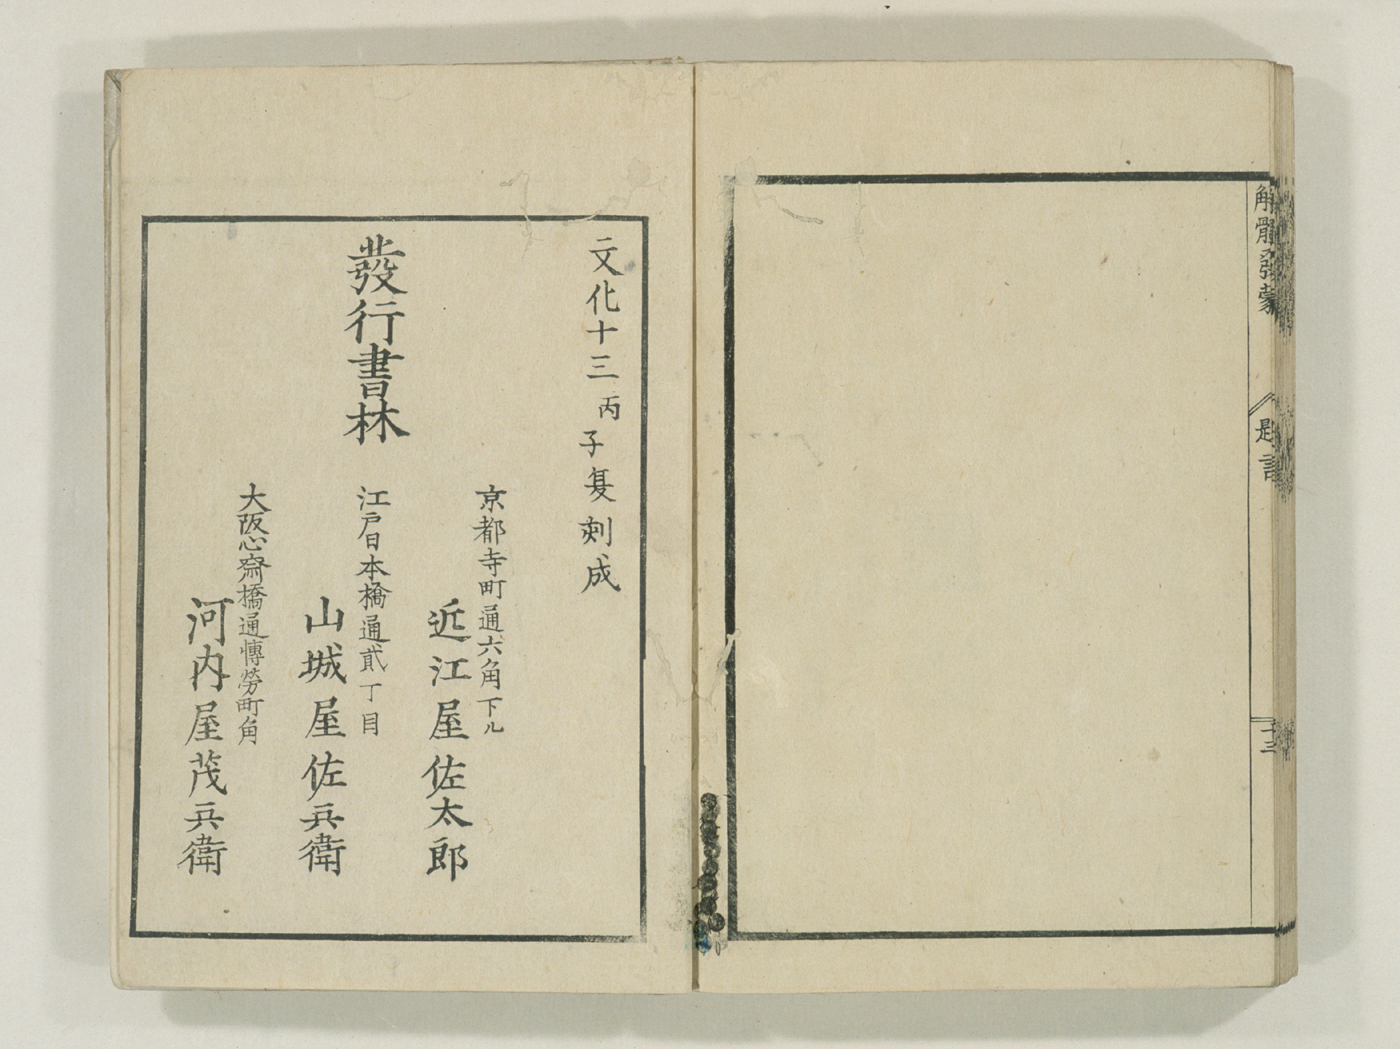 解體發蒙
題言
十三
文化十三丙子夏刻成
發行書林
京都寺町通六角下ル
近江屋佐太郎
江戸日本橋通貳丁目
山城屋佐兵衛
大阪心齋橋通博勞町角
河内屋茂兵衛